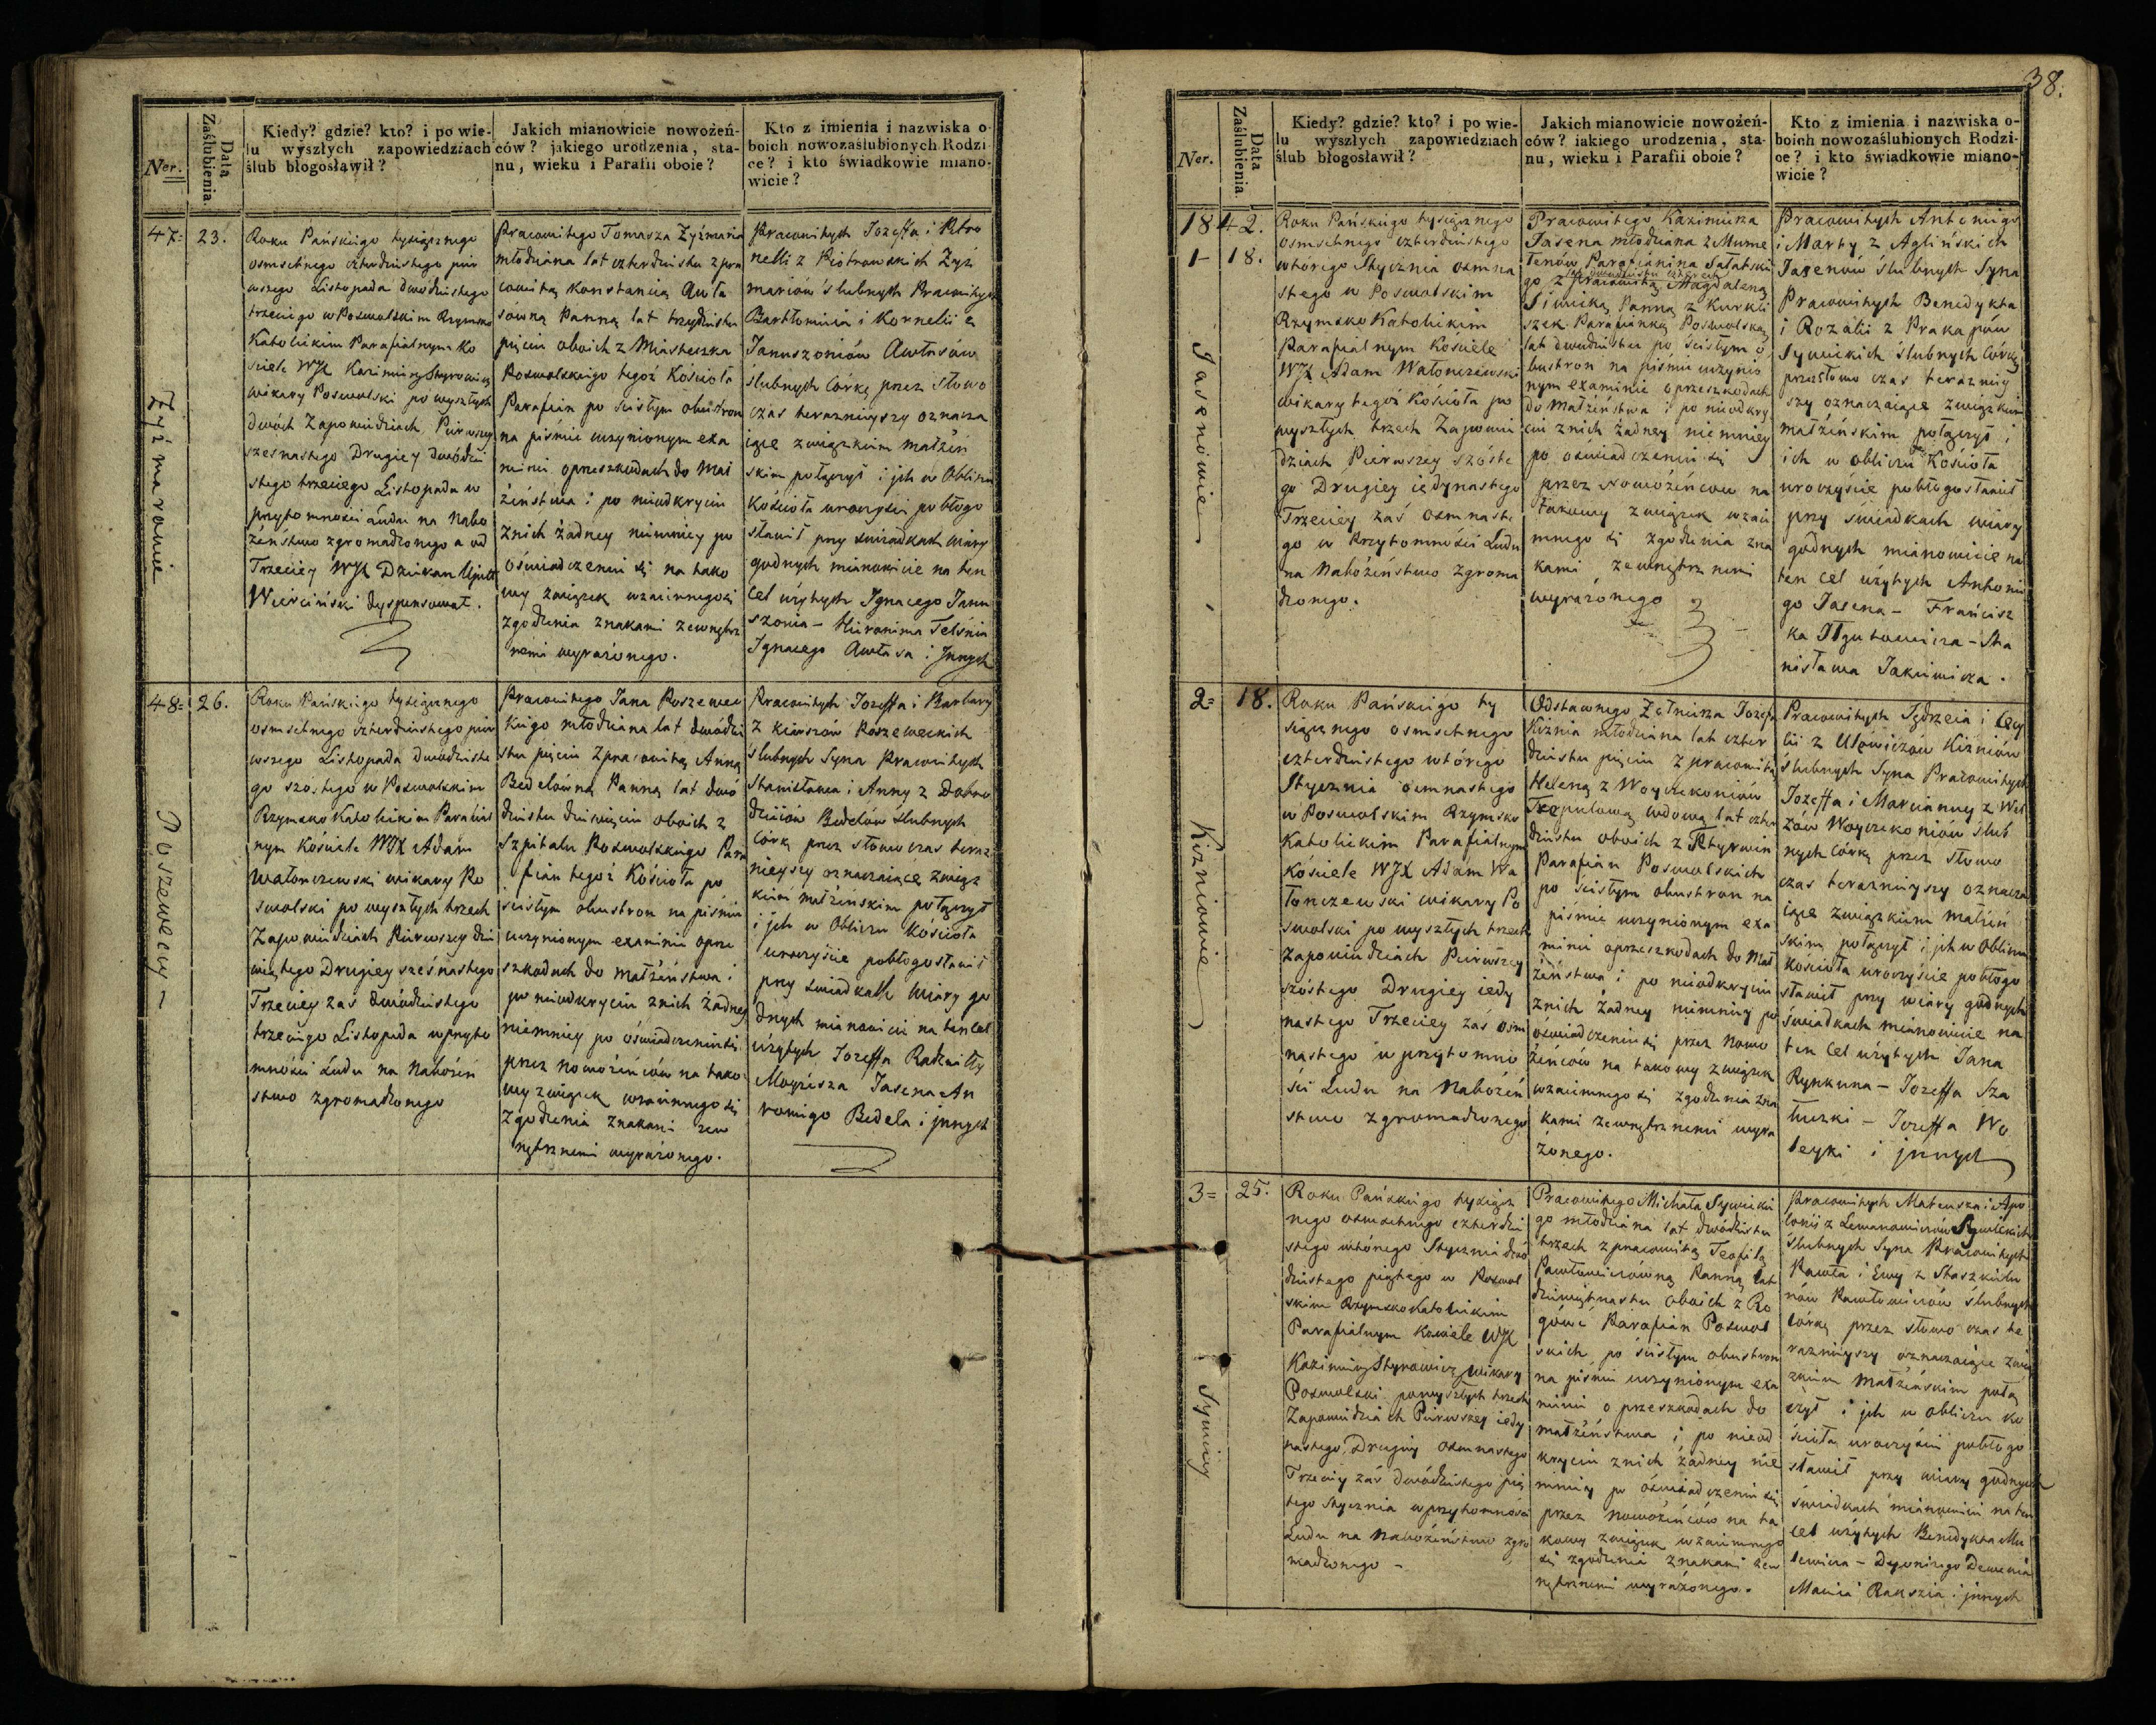 38.
Ner.
Data Zaślubienia.
Kiedy? gdzie? kto? i po wie-
lu wyszłych zapowiedziach
ślub błogosławił?
Jakich mianowicie nowożeń-
ców? jakiego urodzenia, sta-
nu, wieku i Parafii oboie?
Kto z imienia i nazwiska o-
boich nowozaślubionych Rodzi-
ce? i kto świadkowie miano-
wicie?
47=
23.
Żyżmarowie
Roku Pańskiego tysiącznego
osmsetnego czterdziestego pier
wszego Listopada dwódziestego
trzeciego w Poswolskim Rzymsko
Katolickim Parafialnym Ko
ściele WJX Kazimierz Styrowicz
wikary Poswolski po wyszłych
dwóch Zapowiedziach Pierwszey
szesnastego Drugiey dwódzie
stego trzeciego Listopada w
przytomności Ludu na Nabo
żeństwo zgromadzonego a od
Trzeciey WJX Dziekan Upitt
Wierciński dyspensował.
Pracowitego Tomasza Żyżmaria
młodziana lat czterdziestu z pra
cowitą Konstancią Awła
sówną Panną lat trzydziestu
pięciu oboich z Miasteczka
Poswolskiego tegoż Kościoła
Parafian po ścisłym obustron
na piśmie uczynionym exa
minie o przeszkodach do Mał
żeństwa i po nieodkryciu
z nich żadney niemniey po
oświadczeniu się na tako
wy związek wzaiemnego ich
zgodzenia znakami zewnętrz
nemi wyrażonego.
Pracowitych Jozeffa i Petro
nelli z Piotrowskich Żyż
mariow ślubnych Pracowitych
Bartłomieia i Kornelii z
Januszoniów Awłasów
ślubnych Córkę przez słowo
czas teraznieyszy oznacza
iące związkiem małżeń
skim połączył i ich w Obliczu
Kościoła uroczyście pobłogo
sławił przy świadkach wiary
godnych mianowicie na ten
cel użytych Ignacego Janu
szonia - Hieronima Telśnia
Ignacego Awłasa i Jnnych
48=
26.
Poszewecy
Roku Pańskiego tysiącznego
osmsetnego czterdziestego pier
wszego Listopada dwódzieste
go szóstego w Poswolskim
Rzymsko Katolickim Parafial
nym Kościele WJX Adam
Wałonczewski wikary Po
swolski po wyszłych trzech
Zapowiedziach Pierwszey dzie
wiątego Drugiey szesnastego
Trzeciey zaś dwódziestego
trzeciego Listopada w przyto
mności Ludu na Nabożeń
stwo zgromadzonego
Pracowitego Jana Poszewec
kiego młodziana lat dwódzie
stu pięciu z pracowitą Anną
Bedelówną Panną lat dwó
dziestu dziewięciu oboich z
Szpitalu Poswolskiego Para
fian tegoż Kościoła po
ścisłym obustron na piśmie
uczynionym examinie o prze
szkodach do małżeństwa i
po nieodkryciu z nich żadney
niemniey po oświadczeniu się
przez nowożeńców na tako
wy związek wzaiemnego się
zgodzenia znakami zew
nętrznemi wyrażonego.
Pracowitych Jozeffa i Barbary
z Poszeweckich
ślubnych Syna Pracowitych
Stanisława i Anny z
Bedelów ślubnych
Córkę przez słowo czas teraz
nieyszy oznaczaiące związ
kiem małżeńskim połączył
i ich w Obliczu Kościoła
uroczyście pobłogosławił
przy świadkach wiary go
dnych mianowicie na ten cel
użytych Jozeffa Radziwiłły
Moyżesza Jasena An
toniego Bedela i jnnych
Ner.
Data Zaślubienia.
Kiedy? gdzie? kto? i po wie-
lu wyszłych zapowiedziach
ślub błogosławił?
Jakich mianowicie nowożeń-
ców? iakiego urodzenia, sta-
nu, wieku i Parafii oboie?
Kto z imienia i nazwiska o-
boich nowozaślubionych Rodzi-
ce? i kto świadkowie miano-
wicie?
1842.
1-
18.
Jasenowie
Roku Pańskiego tysiącznego
osmsetnego czterdziestego
wtórego Stycznia osmna
stego w Poswolskim
Rzymsko Katolickim
Parafialnym Kościele
WJX Adam Wałonczewski
wikary tegoż Kościoła po
wyszłych trzech Zapowie
dziach Pierwszey szóste
go Drugiey iedynastego
Trzeciey zaś osmnaste
go w Przytomności Ludu
na Nabożeństwo zgroma
dzonego.
Pracowitego Kazimierza
Jasena młodziana z Mume
lenów Parafianina Sałatski
lat dwudziestu czterech
go z Pracowitą Magdaleną
Siwicką Panną z Kurkli
szek Parafianką Poswolską
lat dwudziestu po ścisłym o
bustron na piśmie uczynio
nym examinie o przeszkodach
do Małżeństwa i po nieodkry
ciu z nich żadney niemniey
po oświadczeniu się
przez Nowożeńców na
takowy związek wzaie
mnego się zgodzenia zna
kami zewnętrznemi
wyrażonego
Pracowitych Antoniego
i Marty z Aglińskich
Jasenów ślubnych Syna
Pracowitych Benedykta
i Rozalii z Prakapów
Sywickich ślubnych Córkę
przez słowo czas teraźniey
szy oznaczaiące związkiem
małżeńskim połączył i
ich w obliczu Kościoła
uroczyście pobłogosławił
przy świadkach wiary
godnych mianowicie na
ten cel użytych Antonie
go Jasena - Francisz
ka - Sta
nisława Jakiewicza.
2=
18.
Kiżniowie
Roku Pańskiego ty
siącznego osmsetnego
czterdziestego wtórego
Stycznia osmnastego
w Poswolskim Rzymsko
Katolickim Parafialnym
Kościele WJX Adam Wa
łonczewski wikary Po
swolski po wyszłych trzech
Zapowiedziach Pierwszey
szóstego Drugiey iedy
nastego Trzeciey zaś osm
nastego w przytomno
ści Ludu na Nabożeń
stwo zgromadzonego
Odstawnego Żołnierza Jozefa
Kiżnia młodziana lat czter
dziestu pięciu z pracowitą
Heleną z Woyciekoniów
wdową lat czter
dziestu oboich z
Parafian Poswolskich
po ścisłym obustron na
piśmie uczynionym exa
minie o przeszkodach do Mał
żeństwa i po nieodkryciu
z nich żadney niemniey po
oświadczeniu się przez Nowo
żeńców na takowy związek
wzaiemnego się zgodzenia zna
kami zewnętrznemi wyra
żonego.
Pracowitych Jędrzeia i Cecy
lii z Ulowiczów Kiżniów
ślubnych Syna Pracowitych
Jozeffa i Marcianny z Wel
żów Woyciekoniów ślub
nych Córkę przez słowo
czas teraznieyszy oznacza
iące związkiem małżeń
skim połączył i ich w Obliczu
Kościoła uroczyście pobłogo
sławił przy wiary godnych
świadkach mianowicie na
ten cel użytych Jana
Rynkuna - Jozeffa Sza
łuczki - Jozeffa Wo
leyki i jnnych
3=
25.
Sywicy
Roku Pańskiego tysiącz
nego osmsetnego czterdzie
stego wtórego Stycznia dwó
dziestego piątego w Poswol
skim Rzymsko Katolickim
Parafialnym Kościele WJX
Kazimierz Styrowicz wikary
Poswolski po wyszłych trzech
Zapowiedziach Pierwszey iedy
nastego Drugiey osmnastego
Trzeciey zaś dwódziestego pią
tego Stycznia w przytomności
Ludu na Nabożeństwo zgro
madzonego -
Pracowitego Michała Sywickie
go młodziana lat dwódziestu
trzech z pracowitą Teofilą
Pawłowiczówną Panną lat
dziewiętnastu oboich z Ro
gówi Parafian Poswol
skich po ścisłym obustron
na piśmie uczynionym exa
minie o przeszkodach do
małżeństwa i po nieod
kryciu z nich żadney nie
mniey po oświadczeniu się
przez Nowożeńców na ta
kowy związek wzaiemnego
się zgodzenia znakami zew
nętrznemi wyrażonego.
Pracowitych Mateusza i Apo
lonii z Lewanowiczów Sywickich
ślubnych Syna Pracowitych
Pawła i Ewy z Staszkiele
nów Pawłowiczów ślubnych
Córkę przez słowo czas te
raznieyszy oznaczaiące zwią
zkiem Małżeńskim połą
czył i ich w obliczu Ko
ścioła uroczyście pobłogo
sławił przy wiary godnych
świadkach mianowicie na ten
cel użytych Benedykta Mi
lewicza - Dyonizego Dewenia
Macieia Rakszia i jnnych